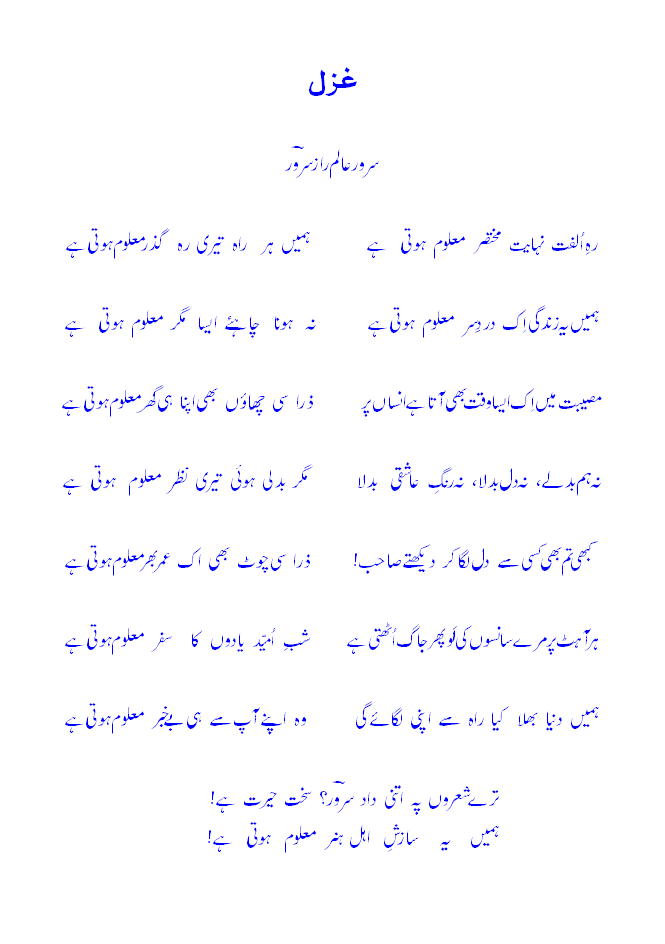 غزل
سرور عالم راز سرورؔ
رہِ اُلفت نہایت مختصر معلوم ہوتی ہے ہمیں ہر راہ تیری رہ گذر معلوم ہوتی ہے
ہمیں یہ زندگی اِک دردِ سر معلوم ہوتی ہے نہ ہونا چاہئے ایسا مگر معلوم ہوتی ہے
مصیبت میں اِک ایسا وقت بھی آتا ہے انساں پر ذرا سی چھاؤں بھی اپنا ہی گھر معلوم ہوتی ہے
نہ ہم بدلے، نہ دل بدلا، نہ رنگِ عاشقی بدلا مگر بدلی ہوئی تیری نظر معلوم ہوتی ہے
کبھی تم بھی کسی سے دل لگا کر دیکھتے صاحب! ذرا سی چوٹ بھی اک عمر بھر معلوم ہوتی ہے
ہر آہٹ پر مرے سانسوں کی لَو پھر جاگ اُٹھتی ہے شبِ اُمیّد یادوں کا سفر معلوم ہوتی ہے
ہمیں دنیا بھلا کیا راہ سے اپنی لگائے گی وہ اپنے آپ سے ہی بے خبر معلوم ہوتی ہے
ترے شعروں پہ اتنی داد سرورؔ؟ سخت حیرت ہے!
ہمیں یہ سازشِ اہل ہنر معلوم ہوتی ہے!